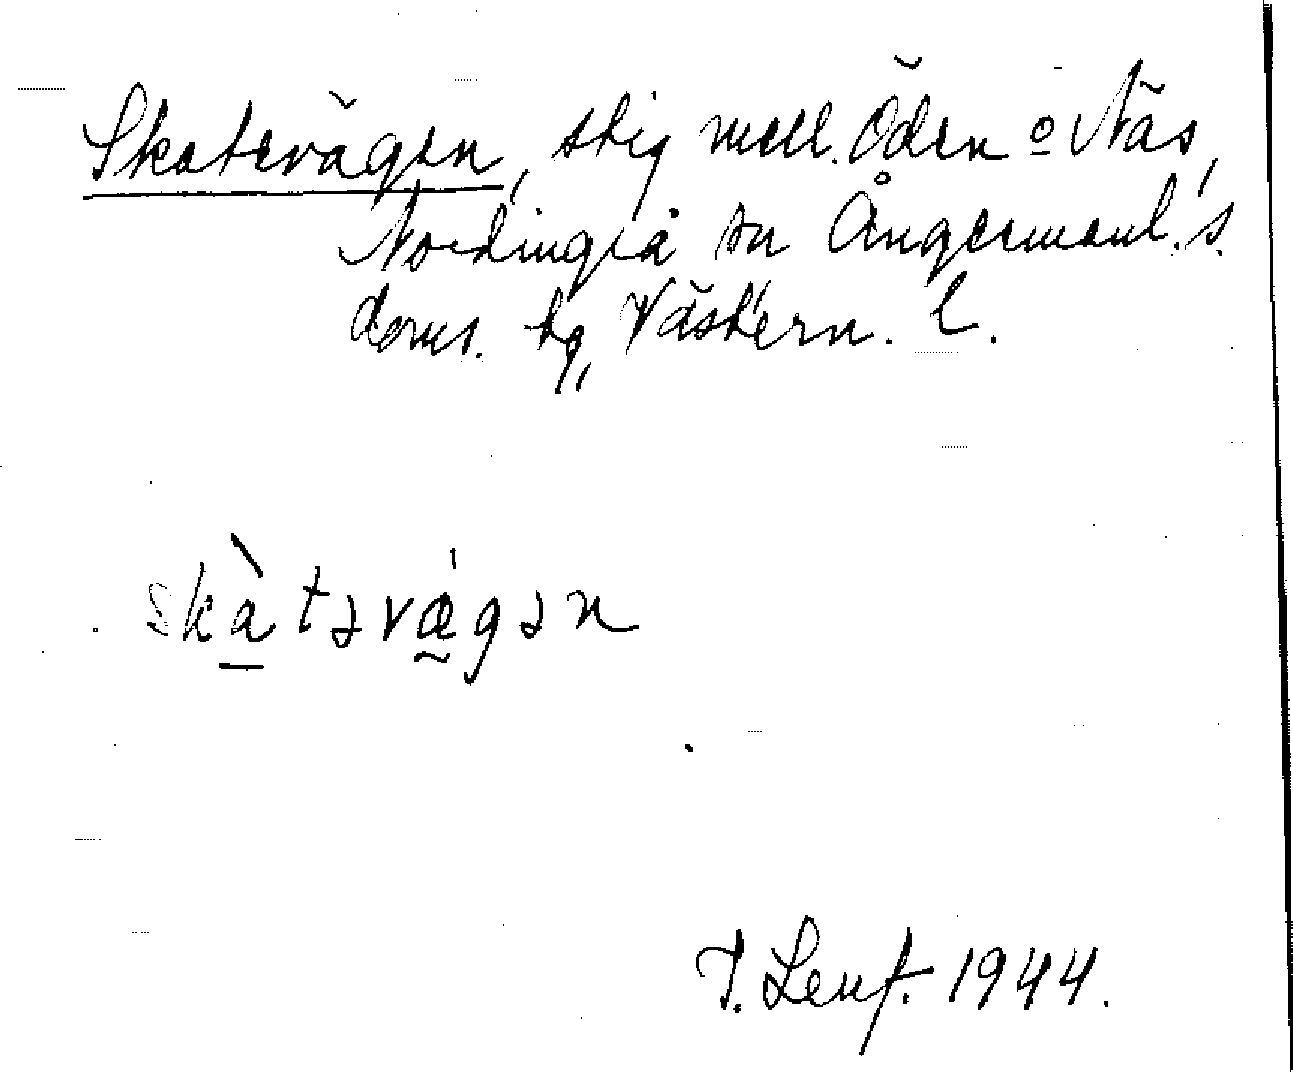 Skatevägen, stig mell. Öden o Näs,
Nordingrå sn Ångermanl. s.
doms. tg, Västern. l.
skàtəvǽgən
T. Lenf. 1944.